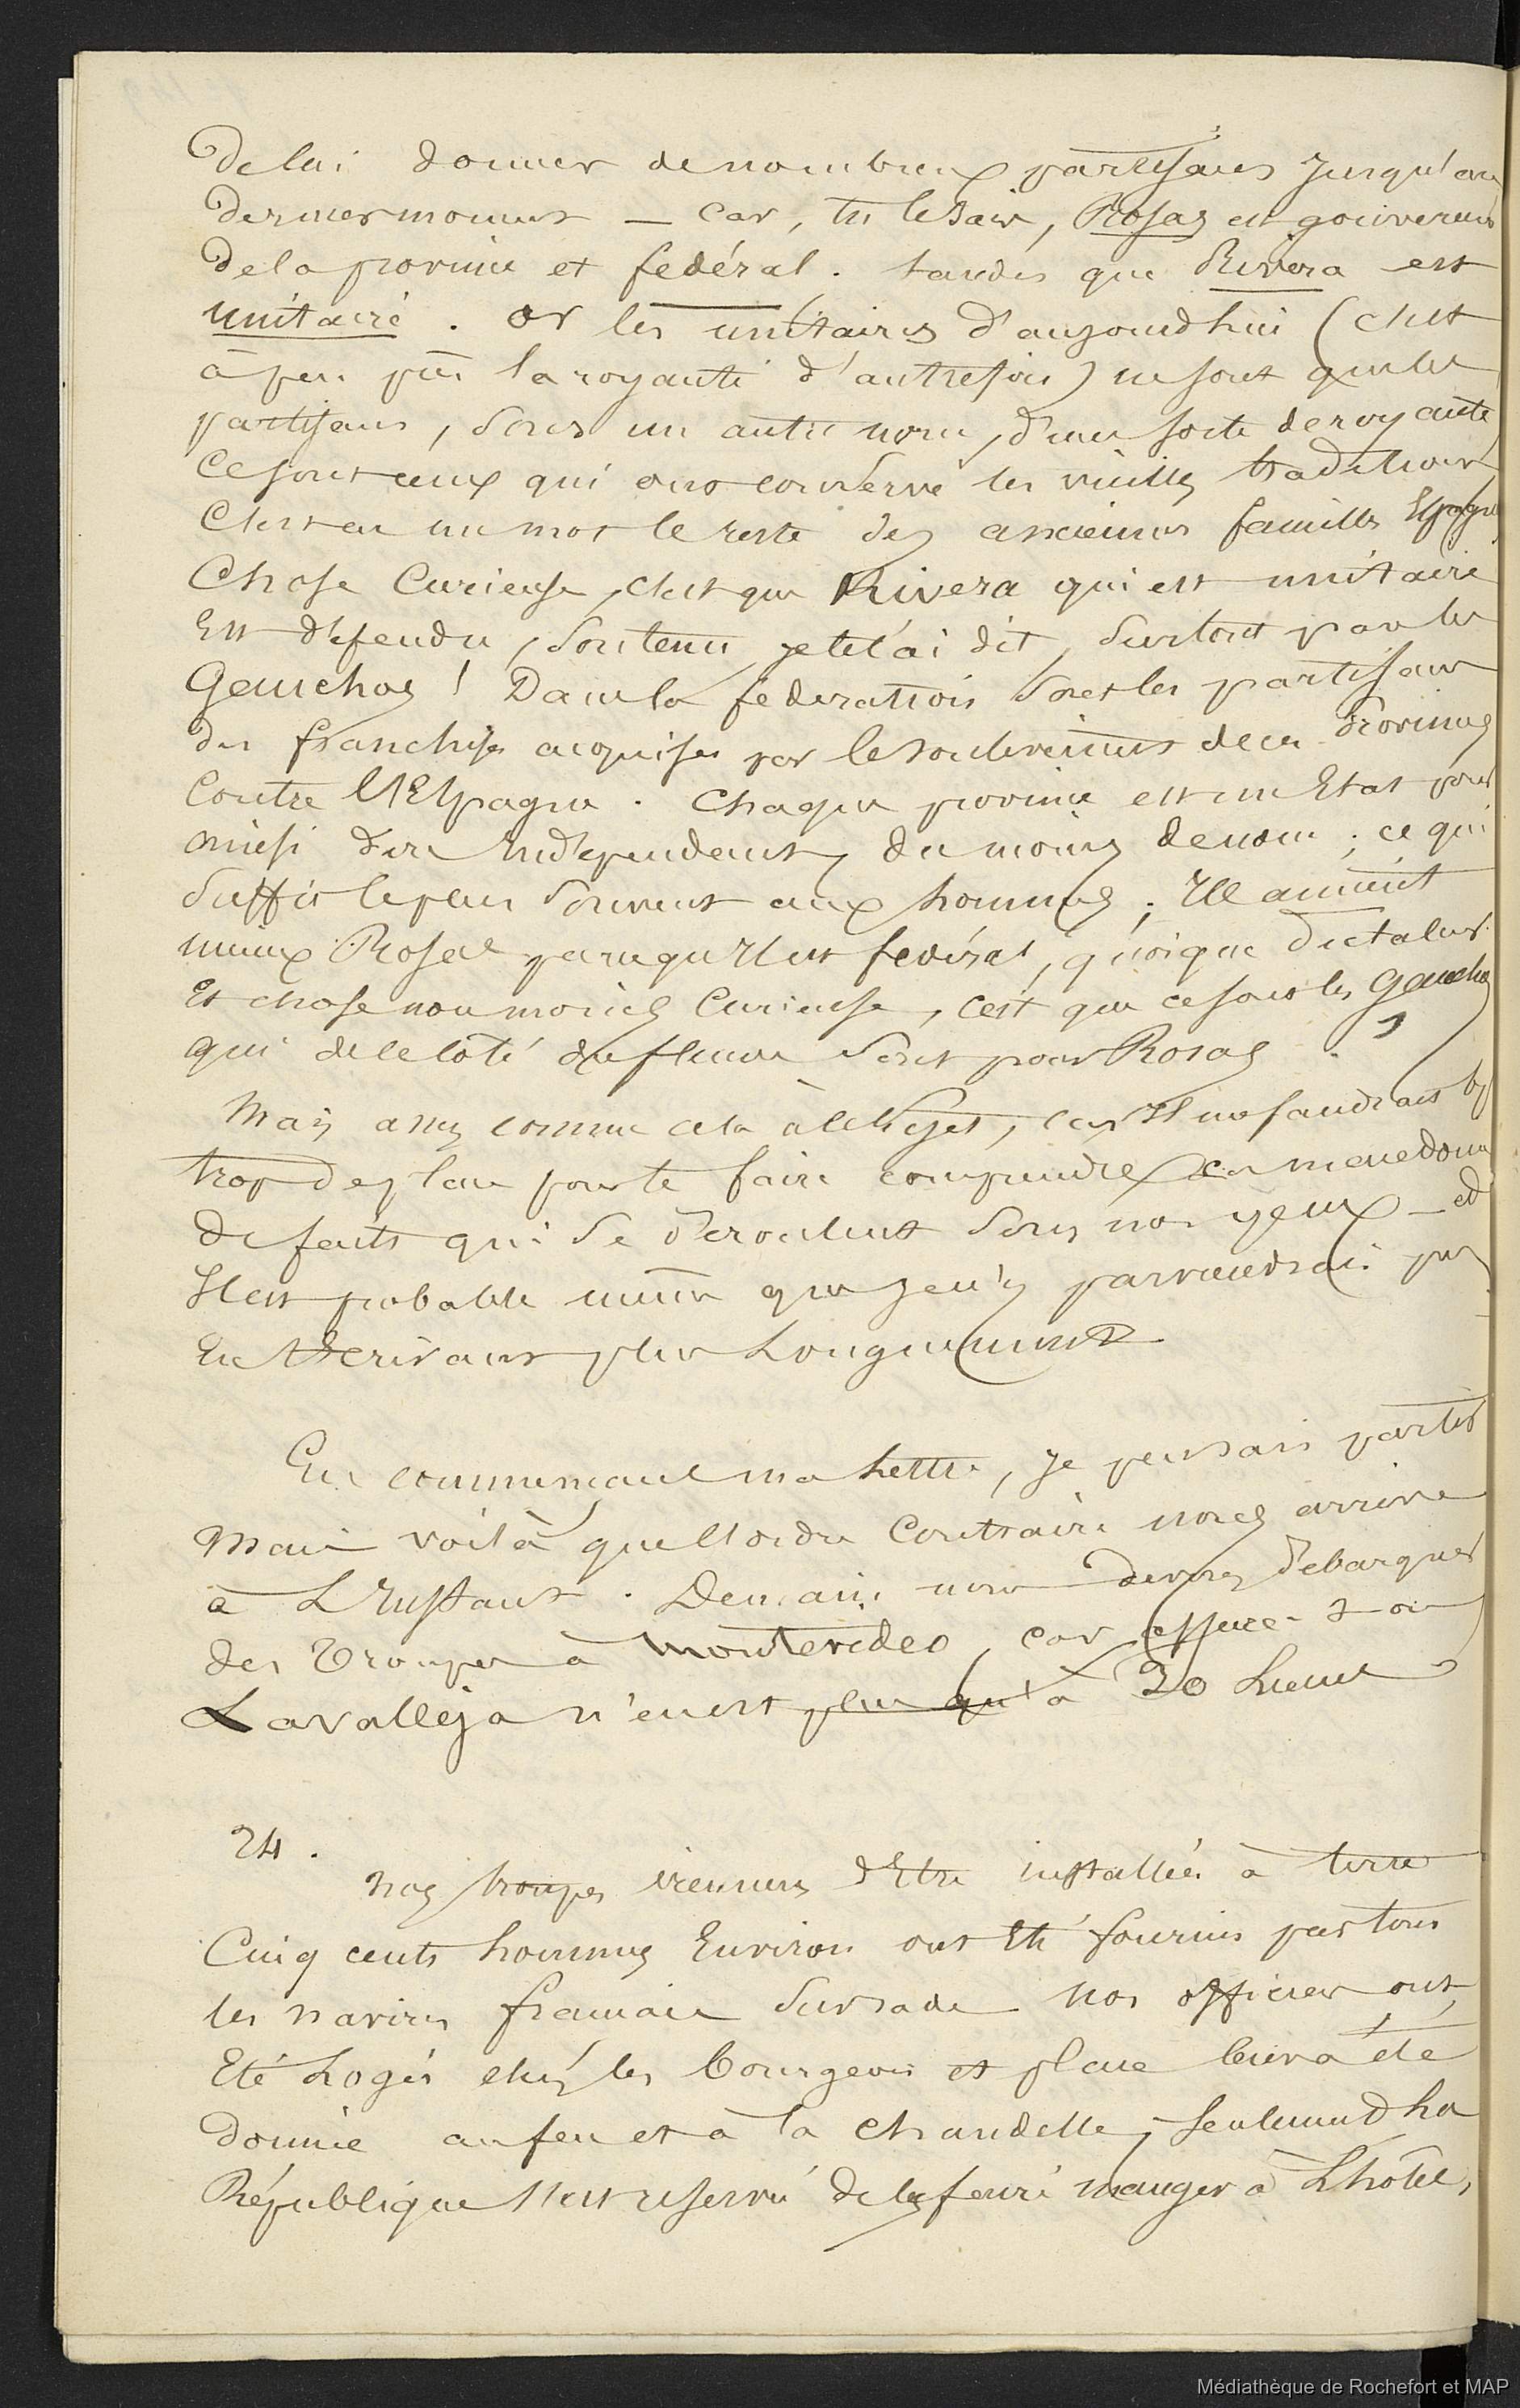 De lui donner de nombreux partisans jusqu'au
dernier moment — Car, tu le sais, Rosas est gouverneur
de la province et fédéral. tandis que Rivera est
unitaire. Or les unitaires d'aujourd'hui (c'est
à peu près la royauté d'autrefois) ne sont que les
partisans, sous un autre nom, d'une sorte de royauté
Ce sont ceux qui ont conservé les vieilles traditions
C'est en un mot le reste des anciennes familles Espagn
Chose Curieuse, c'est que Rivera qui est unitaire
Est défendu, soutenu je te l'ai dit, surtout par les
Gauchos ! Dans la fédération sont les partisans
des franchises acquises par le soulèvement de ces Provinces
Contre l'Espagne. Chaque province est un Etat pour
ainsi dire Indépendant, du moins de nom ; ce qui
Suffit le plus souvent aux hommes ; Ils aiment
mieux Rosas parcequ'il est fédéral, quoique dictateur.
Et chose non moins Curieuse, c'est que ce sont les Gauchos
qui de ce côté du fleuve sont pour Rosas.
Mais assez comme cela à ce sujet, car Il me faudrait
trop de place pour te faire comprendre ces macédoines
de faits qui se déroulent sous nos yeux — et
Il est probable même que je n'y parviendrai pas
En t'écrivant plus Longuement
En commençant ma lettre, je pensais partir
Mais voilà que l'ordre Contraire nous arrive
à L'Instant. Demain nous devons débarquer
des Troupes à Montevideo, car assure-t-on
Lavalleja n'en est plus qu'à 20 Lieues
24.
Nos troupes viennent d'Etre installées à terre
Cinq cents hommes Environ ont Eté fournis par tous
les navires français sur rade Nos officiers ont
Eté Logés chez les bourgeois et place leur a été
Donnée au feu et à la chandelle, seulement La
République s'est réservé de les faire manger à L'hôtel,
Médiathèque de Rochefort et MAP